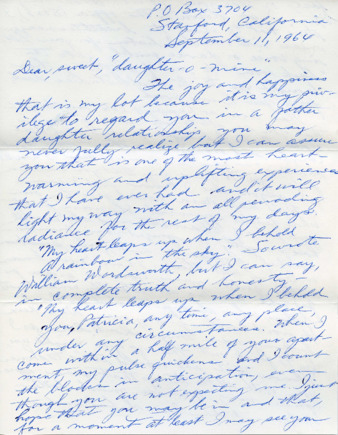 P O Box 3704
Stanford, California
September 11, 1964
Dear, sweet, "daughter-o-mine"
The joy and happiness
that is my lot because it is my priv-
ilege to regard you in a father
daughter relationship, you may
never fully realize but I can assure
you that is one of the most heart-
warming and uplifting experiences
that I have ever had and it will
light my way with an all pervading
radiance for the rest of my days.
"My heart leaps up when I behold
a rainbow in the sky." So wrote
William Wordsworth, but I can say,
in complete truth and honesty,
"My heart leaps up when I behold
you, Patricia, any time, any place,
under any circumstances. When I
come within a half mile of your apart-
ment, my pulse quickens and I count
the blocks in anticipation, even
though you are not expecting me. I just
hope that you may be in and that,
for a moment at least I may see you